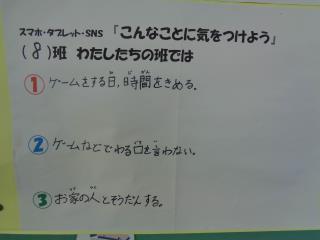 スマホ・タブレット・SNS 『こんなことに気をつけよう』
(8)班 わたしたちの班では
① ゲームをする日、時間をきめる。
② ゲームなどでわる口を言わない。
③ お家の人とそうだんする。